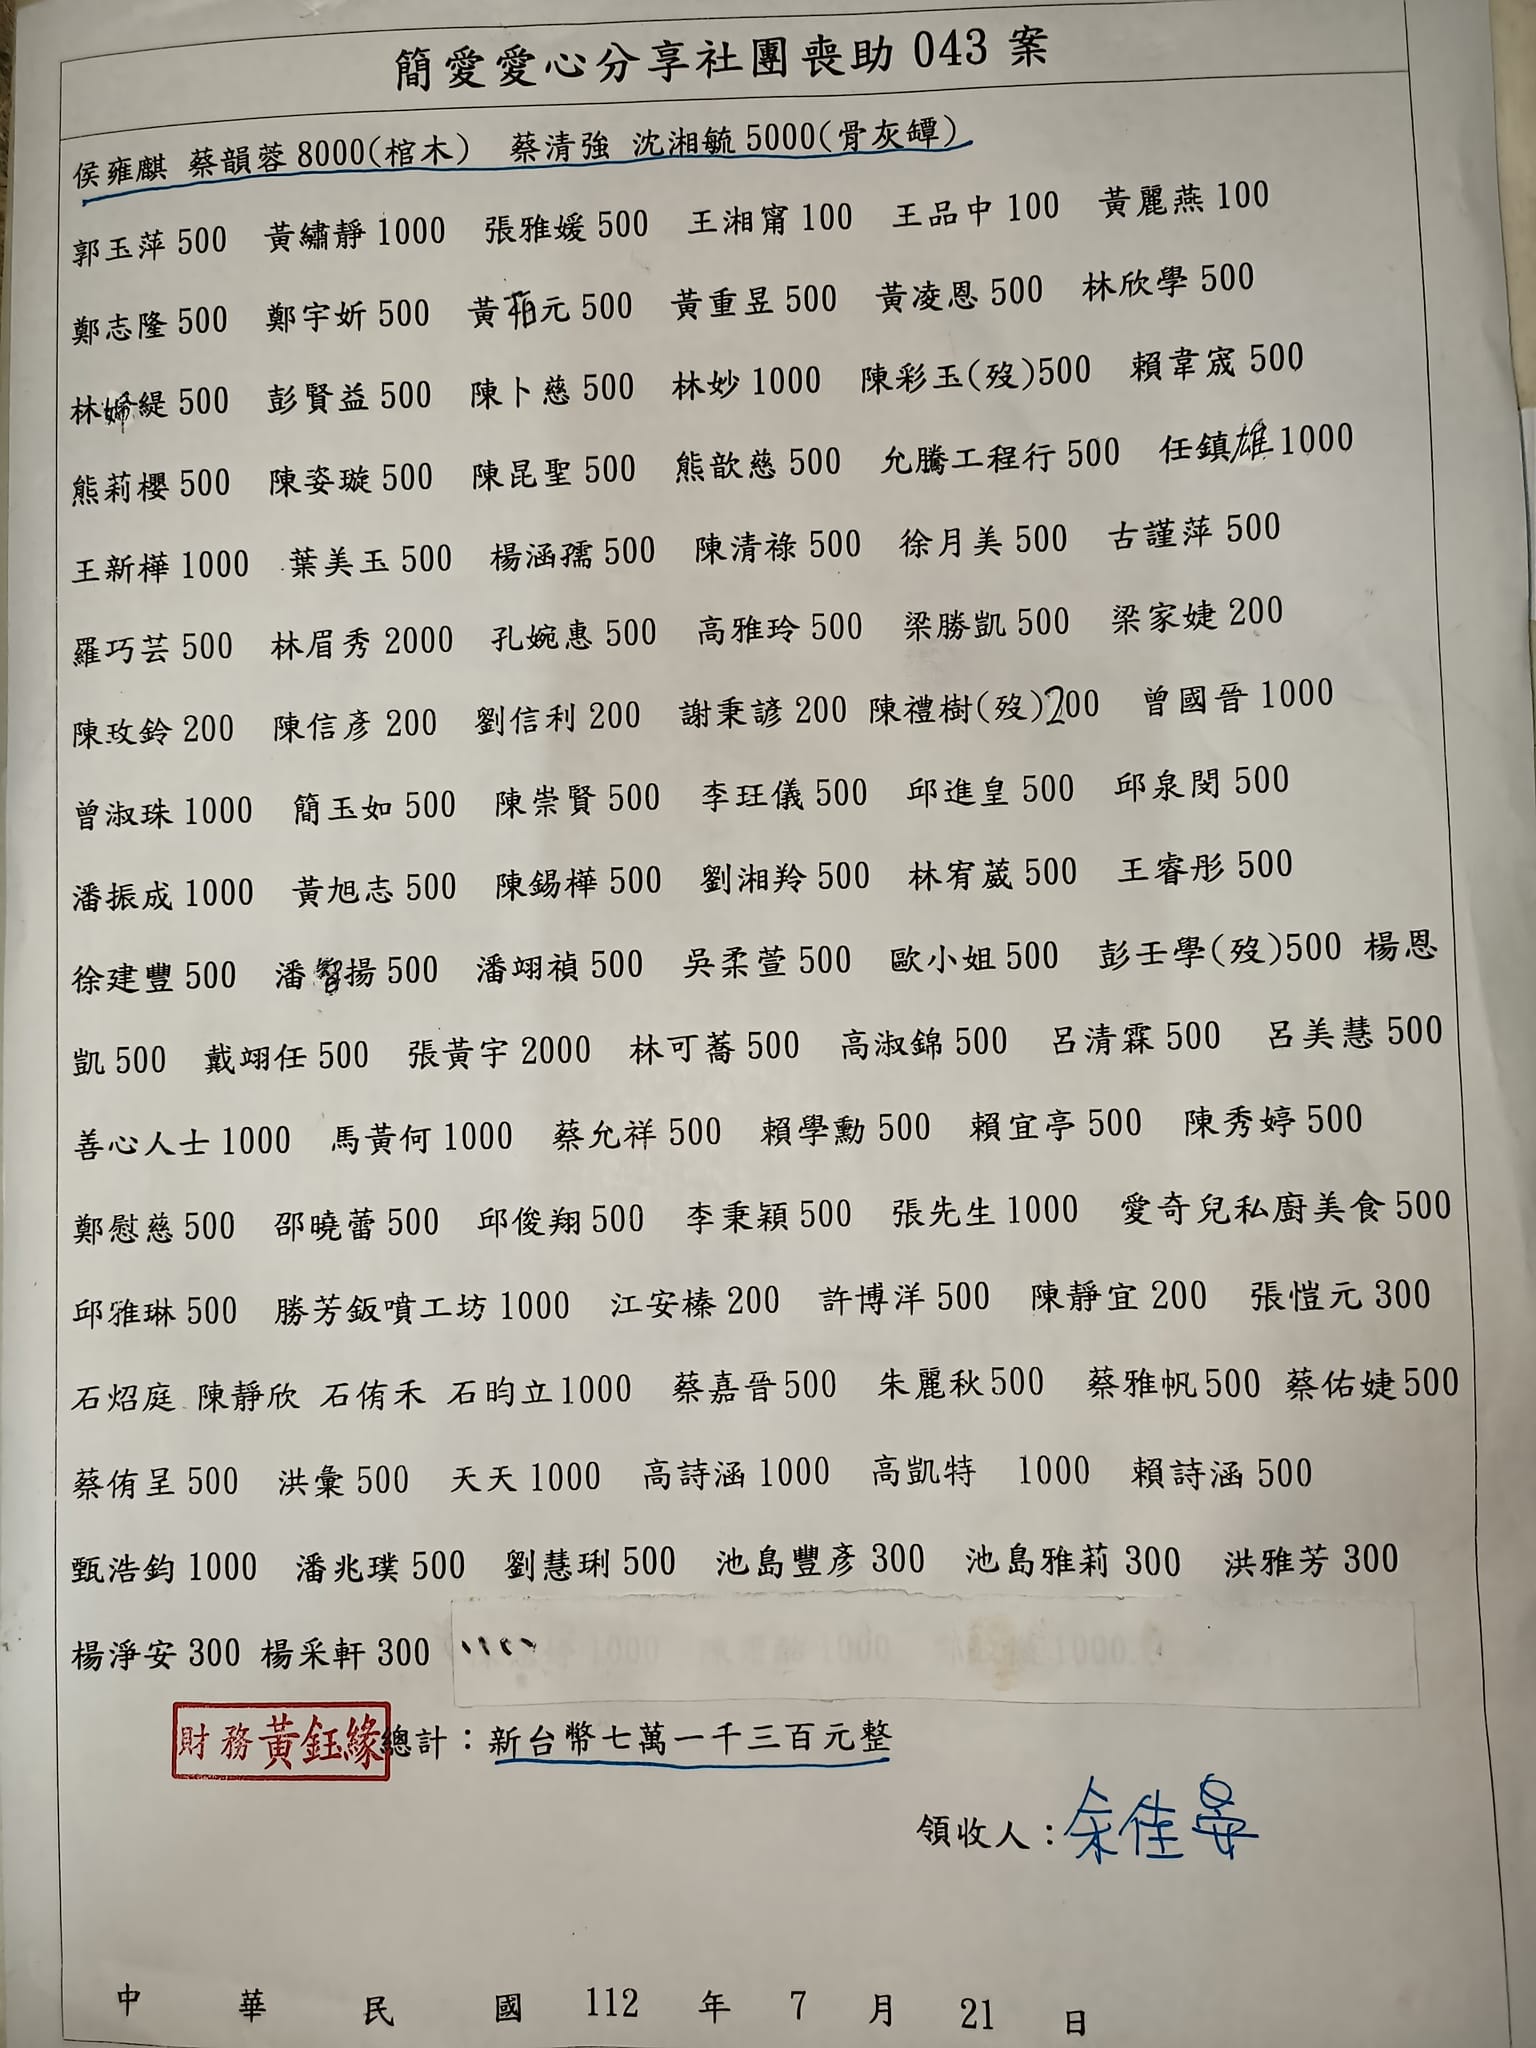 簡愛愛心分享社團喪助 043 案
侯雍麒 蔡韻蓉 8000(棺木) 蔡清強 沈湘毓 5000(骨灰罈)
郭玉萍 500 黃繡靜 1000 張雅媛 500 王湘甯 100 王品中 100 黃麗燕 100
鄭志隆 500 鄭宇妡 500 黃柏元 500 黃重昱 500 黃凌恩 500 林欣學 500
林婦緹 500 彭賢益 500 陳卜慈 500 林妙 1000 陳彩玉(歿)500 賴韋宬 500
熊莉櫻 500 陳姿璇 500 陳昆聖 500 熊歆慈 500 允騰工程行 500 任鎮雄 1000
王新樺 1000 葉美玉 500 楊涵孺 500 陳清祿 500 徐月美 500 古謹萍 500
羅巧芸 500 林眉秀 2000 孔婉惠 500 高雅玲 500 梁勝凱 500 梁家婕 200
陳玫鈴 200 陳信彥 200 劉信利 200 謝秉諺 200 陳禮樹(歿)200 曾國晉 1000
曾淑珠 1000 簡玉如 500 陳崇賢 500 李玨儀 500 邱進皇 500 邱泉閔 500
潘振成 1000 黃旭志 500 陳錫樺 500 劉湘羚 500 林宥葳 500 王睿彤 500
徐建豐 500 潘智揚 500 潘翊禎 500 吳柔萱 500 歐小姐 500 彭壬學(歿)500 楊恩
凱 500 戴翊任 500 張黃宇 2000 林可蕎 500 高淑錦 500 呂清霖 500 呂美慧 500
善心人士 1000 馬黃何 1000 蔡允祥 500 賴學勳 500 賴宜亭 500 陳秀婷 500
鄭慰慈 500 邵曉蕾 500 邱俊翔 500 李秉穎 500 張先生 1000 愛奇兒私廚美食 500
邱雅琳 500 勝芳鈑噴工坊 1000 江安榛 200 許博洋 500 陳靜宜 200 張愷元 300
石炤庭 陳靜欣 石侑禾 石昀立 1000 蔡嘉晉 500 朱麗秋 500 蔡雅帆 500 蔡佑婕 500
蔡侑呈 500 洪彙 500 天天 1000 高詩涵 1000 高凱特 1000 賴詩涵 500
甄浩鈞 1000 潘兆璞 500 劉慧琍 500 池島豐彥 300 池島雅莉 300 洪雅芳 300
楊淨安 300 楊采軒 300
財務黃鈺緣 總計：新台幣七萬一千三百元整
領收人：余佳晏
中 華 民 國 112 年 7 月 21 日